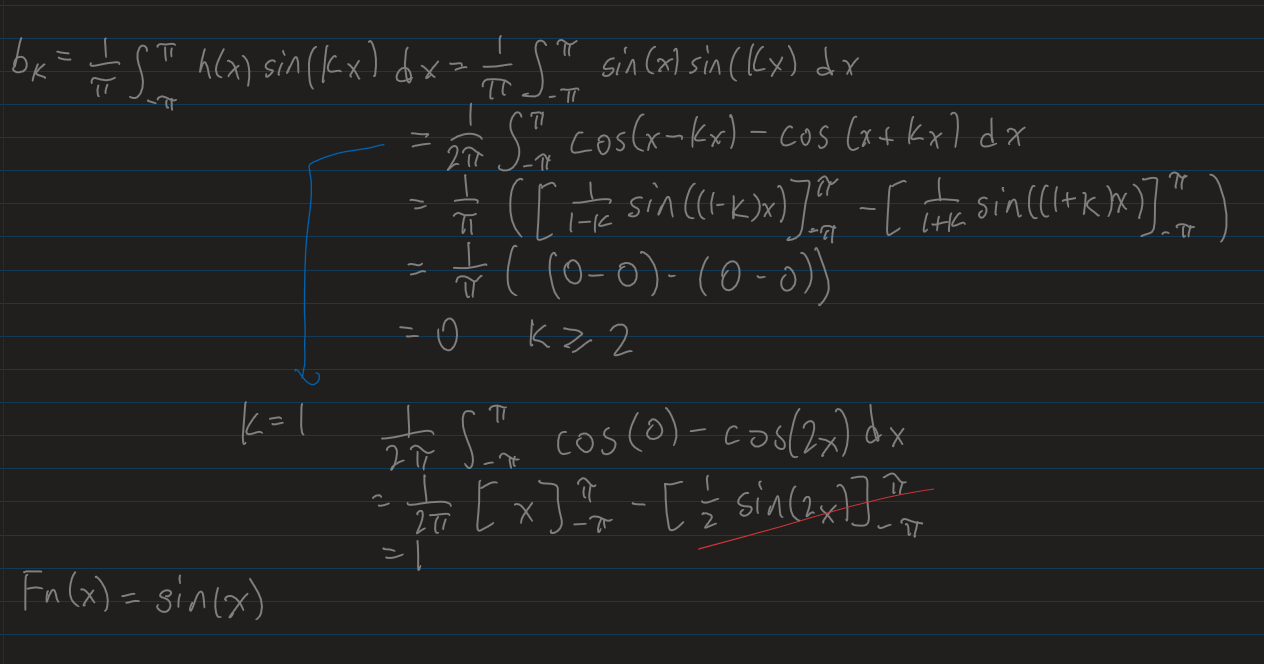 b_K = 1/π ∫_{-π}^{π} h(x) sin(Kx) dx = 1/π ∫_{-π}^{π} sin(x) sin(Kx) dx
= 1/2π ∫_{-π}^{π} cos(x-Kx) - cos(x+Kx) dx
= 1/π ( [ 1/(1-K) sin((1-K)x) ]_{-π}^{π} - [ 1/(1+K) sin((1+K)x) ]_{-π}^{π} )
= 1/π ( (0-0) - (0-0) )
= 0 K ≥ 2
K=1 1/2π ∫_{-π}^{π} cos(0) - cos(2x) dx
= 1/2π [ x ]_{-π}^{π} - [ 1/2 sin(2x) ]_{-π}^{π}
= 1
Fn(x) = sin(x)